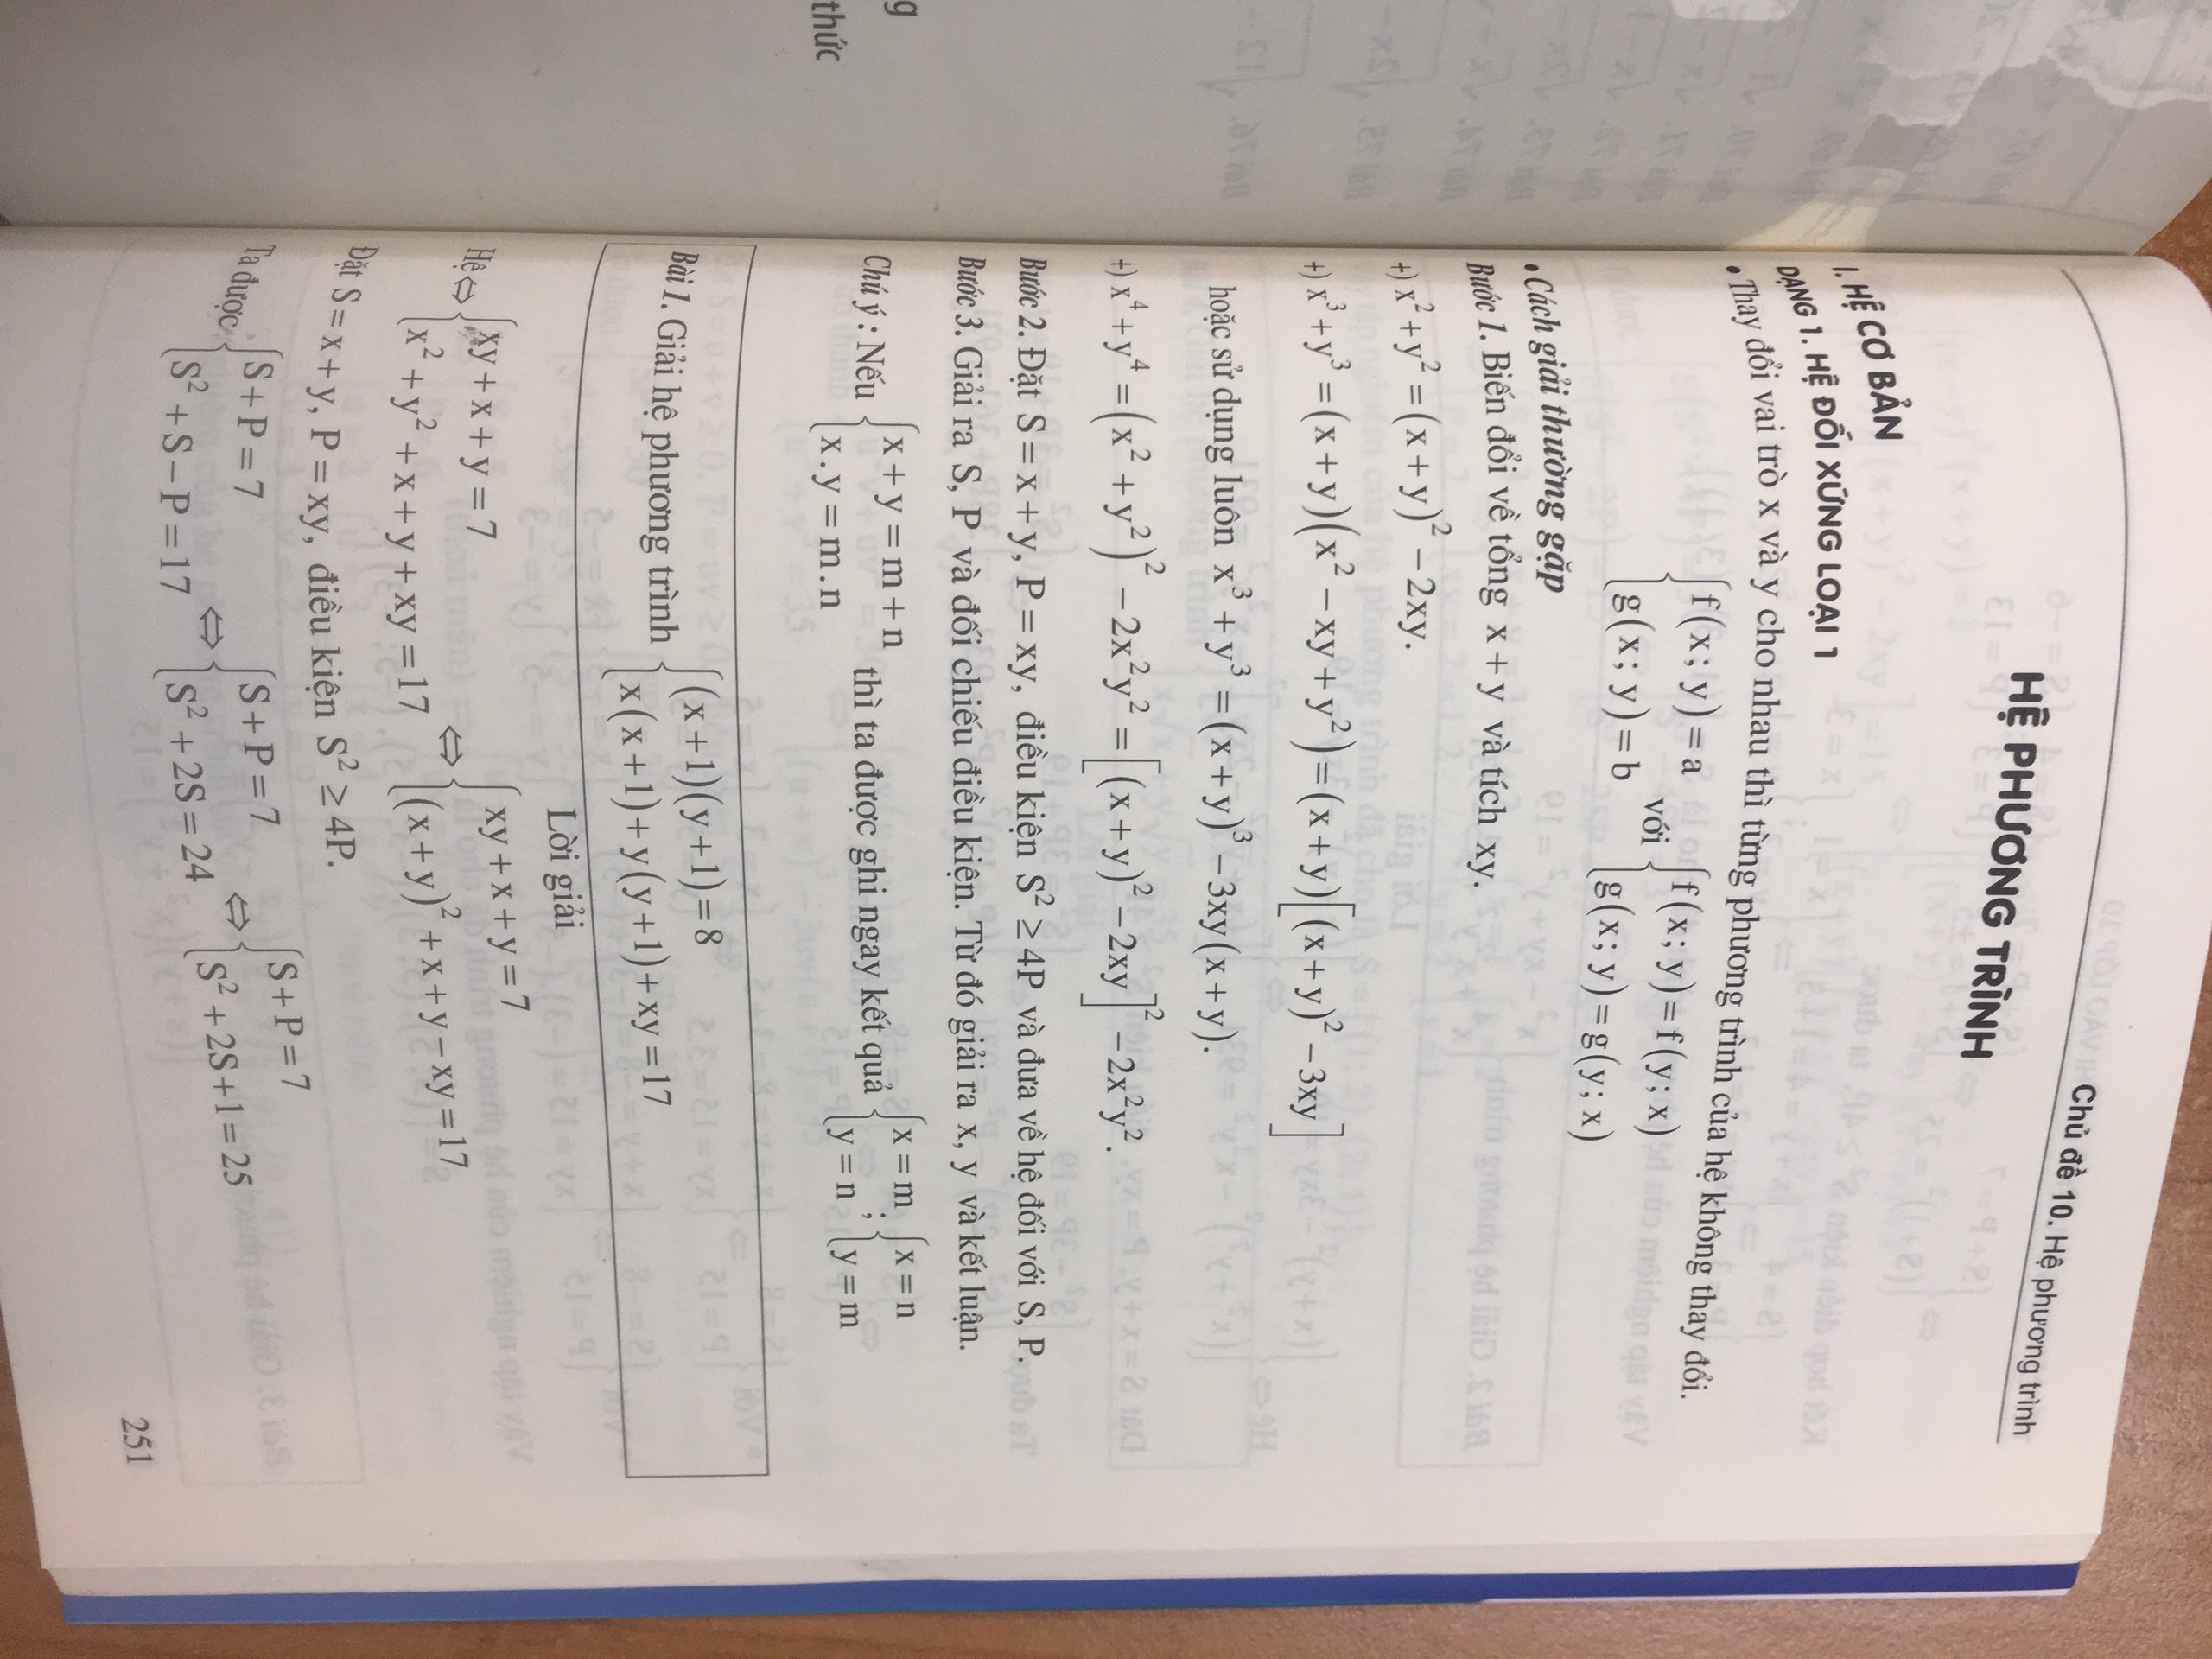 Chủ đề 10. Hệ phương trình
HỆ PHƯƠNG TRÌNH
I. HỆ CƠ BẢN
DẠNG 1. HỆ ĐỐI XỨNG LOẠI 1
• Thay đổi vai trò x và y cho nhau thì từng phương trình của hệ không thay đổi.
{f(x; y) = a với {f(x; y) = f(y; x)
{g(x; y) = b {g(x; y) = g(y; x)
• Cách giải thường gặp
Bước 1. Biến đổi về tổng x + y và tích xy.
+) x² + y² = (x + y)² − 2xy.
+) x³ + y³ = (x + y)(x² − xy + y²) = (x + y)[(x + y)² − 3xy]
hoặc sử dụng luôn x³ + y³ = (x + y)³ − 3xy(x + y).
+) x⁴ + y⁴ = (x² + y²)² − 2x²y² = [(x + y)² − 2xy]² − 2x²y².
Bước 2. Đặt S = x + y, P = xy, điều kiện S² ≥ 4P và đưa về hệ đối với S, P.
Bước 3. Giải ra S, P và đối chiếu điều kiện. Từ đó giải ra x, y và kết luận.
Chú ý : Nếu {x + y = m + n thì ta được ghi ngay kết quả {x = m ; {x = n
{x.y = m.n {y = n {y = m
Bài 1. Giải hệ phương trình {(x + 1)(y + 1) = 8
{x(x + 1) + y(y + 1) + xy = 17
Lời giải
Hệ ⇔ {xy + x + y = 7 ⇔ {xy + x + y = 7
{x² + y² + x + y + xy = 17 {(x + y)² + x + y − xy = 17
Đặt S = x + y, P = xy, điều kiện S² ≥ 4P.
Ta được {S + P = 7 ⇔ {S + P = 7 ⇔ {S + P = 7
{S² + S − P = 17 {S² + 2S = 24 {S² + 2S + 1 = 25
251
g
thức